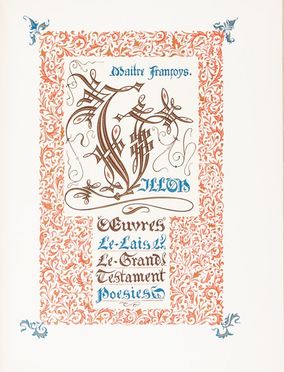 Maitre Françoys.
VILLON
Œuvres
Le-Lais
Le-Grand
Testament
Poesies